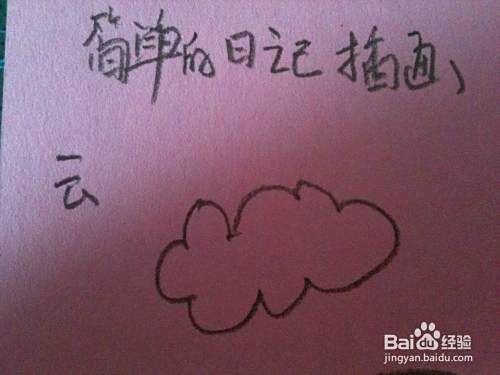 简单的日记插画、
云
Baidu经验
jingyan.baidu.com